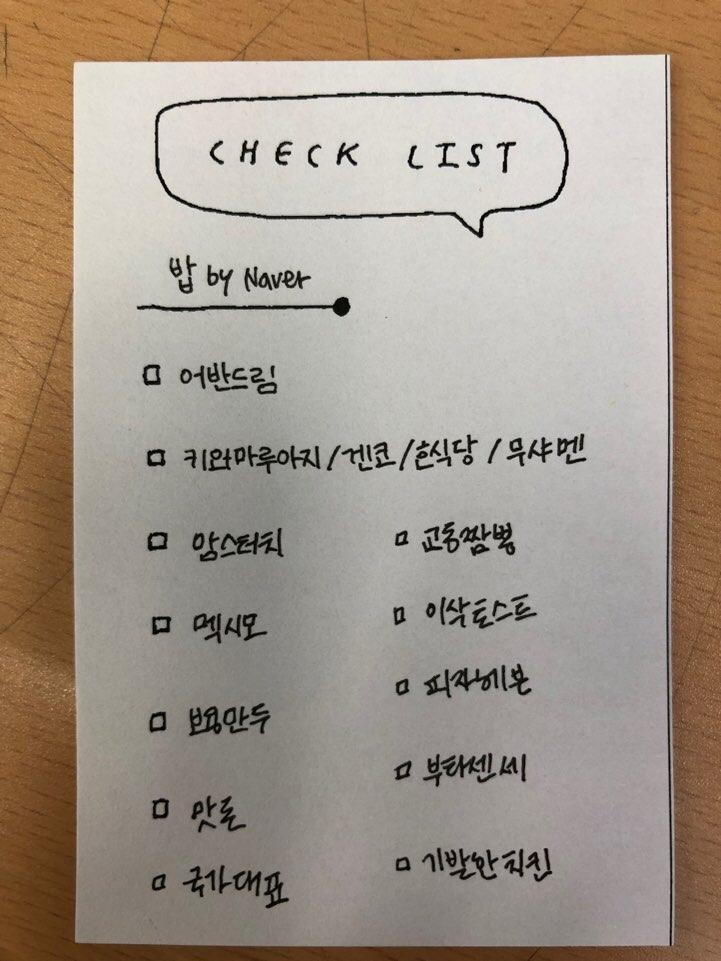 CHECK LIST
밥 by Naver
어반드림
키와마루아지 / 겐코 / 흔식당 / 무샤멘
맘스터치
멕시모
보용만두
맛돈
국가대표
교동짬뽕
이삭토스트
피자헤븐
부타센세
기발한치킨